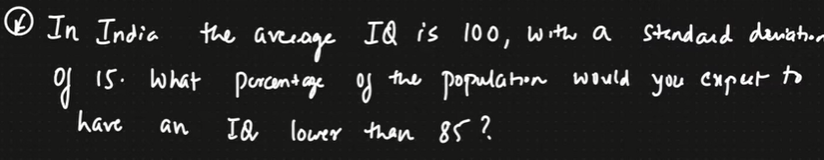 In India the average IQ is 100, with a standard deviation
of 15. What percentage of the population would you expect to
have an IQ lower than 85?